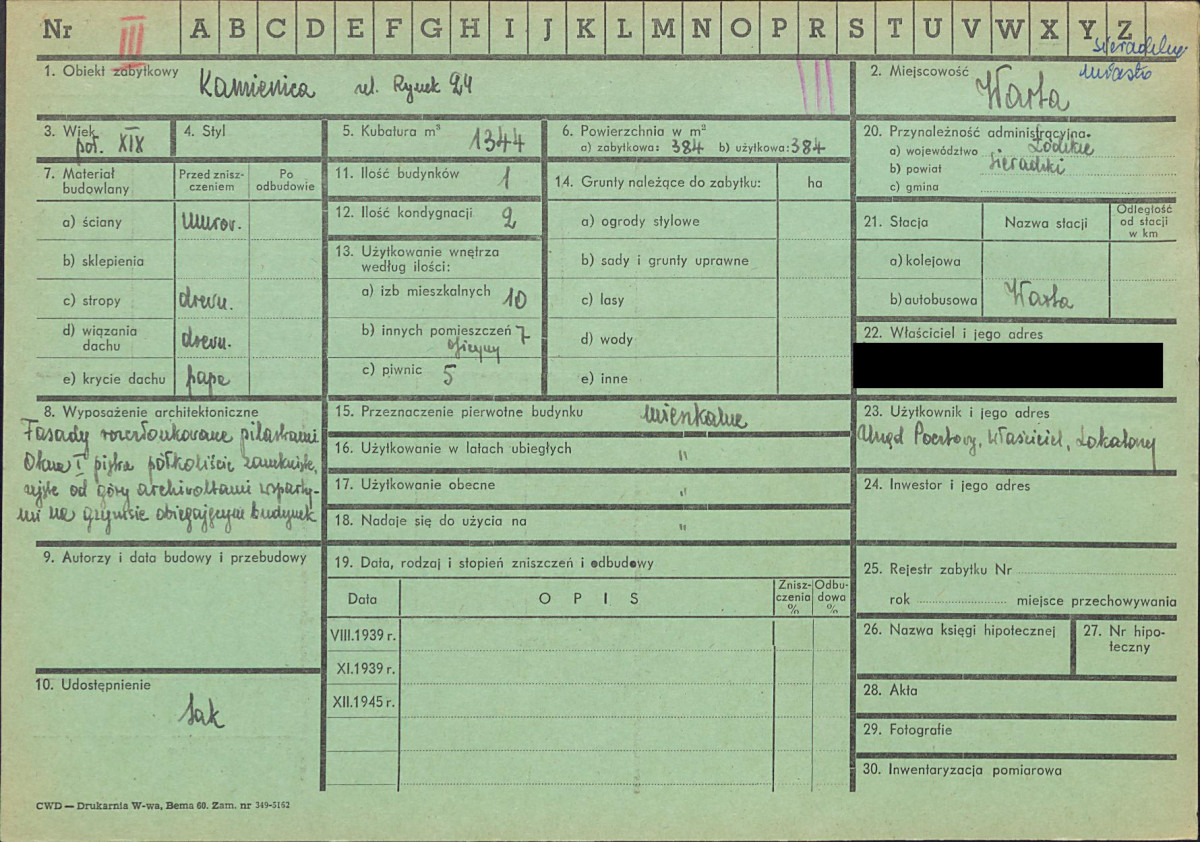 Nr III A B C D E F G H I J K L M N O P R S T U V W X Y Z
sieradzkie
miasto
1. Obiekt zabytkowy Kamienica ul. Rynek 24
2. Miejscowość Warta
3. Wiek poł. XIX
4. Styl
5. Kubatura m³ 1344
6. Powierzchnia w m²
a) zabytkowa: 384 b) użytkowa: 384
7. Materiał budowlany
Przed znisz-
czeniem
Po
odbudowie
a) ściany murow.
b) sklepienia
c) stropy drewn.
d) wiązania
dachu drewn.
e) krycie dachu papa
8. Wyposażenie architektoniczne
Fasady rozczłonkowane pilastrami
Okna I piętra półkoliście zamknięte,
ujęte od góry archivoltami wsparty-
mi na gzymsie obiegającym budynek
9. Autorzy i data budowy i przebudowy
10. Udostępnienie
tak
11. Ilość budynków 1
12. Ilość kondygnacji 2
13. Użytkowanie wnętrza
według ilości:
a) izb mieszkalnych 10
b) innych pomieszczeń 7
oficyny
c) piwnic 5
14. Grunty należące do zabytku: ha
a) ogrody stylowe
b) sady i grunty uprawne
c) lasy
d) wody
e) inne
15. Przeznaczenie pierwotne budynku mieszkalne
16. Użytkowanie w latach ubiegłych "
17. Użytkowanie obecne "
18. Nadaje się do użycia na "
19. Data, rodzaj i stopień zniszczeń i odbudowy
Data O P I S
Znisz-
czenia
%
Odbu-
dowa
%
VIII.1939 r.
XI.1939 r.
XII.1945 r.
20. Przynależność administracyjna.
a) województwo Łódzkie
b) powiat sieradzki
c) gmina
21. Stacja Nazwa stacji
Odległość
od stacji
w km
a) kolejowa
b) autobusowa Warta
22. Właściciel i jego adres
23. Użytkownik i jego adres
Urząd Pocztowy, Właściciel, Lokatorzy
24. Inwestor i jego adres
25. Rejestr zabytku Nr
rok miejsce przechowywania
26. Nazwa księgi hipotecznej
27. Nr hipo-
teczny
28. Akta
29. Fotografie
30. Inwentaryzacja pomiarowa
CWD — Drukarnia W-wa, Bema 60. Zam. nr 349-5162